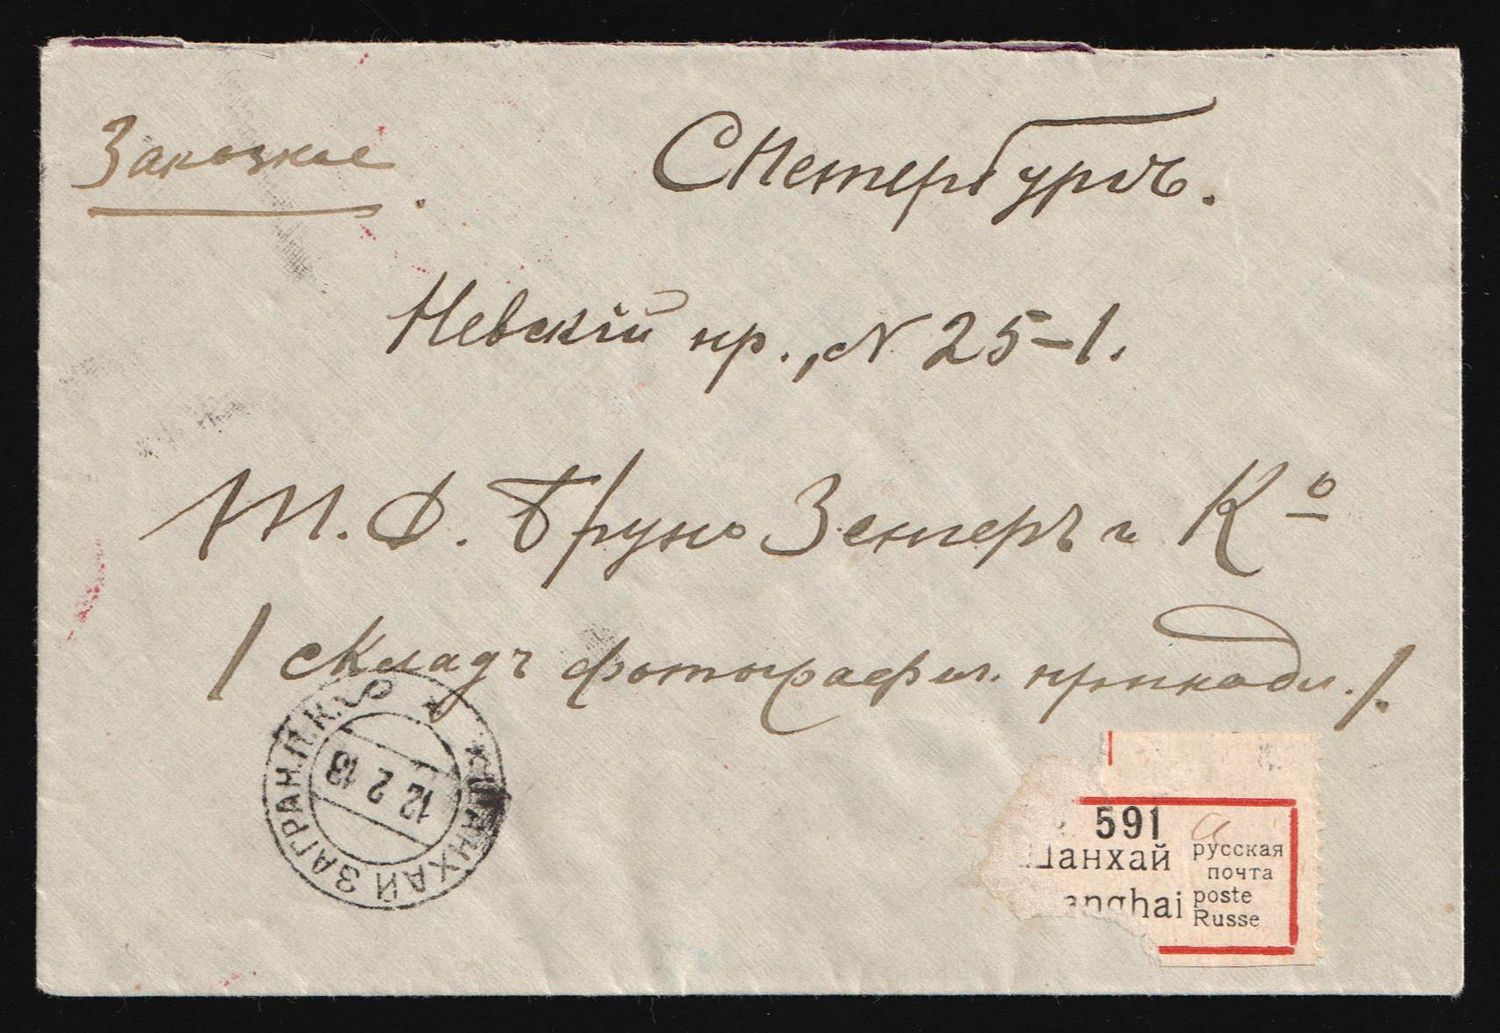 Заказное
СПетербургъ.
Невскій пр., N 25-1.
Т. Д. Бруно Зенгеръ и Кº
/ складъ фотографич. принадл. /.
ШАНХАЙ ЗАГРАН.П.К.
12 2 13
591
Шанхай
русская
почта
anghai
poste
Russe